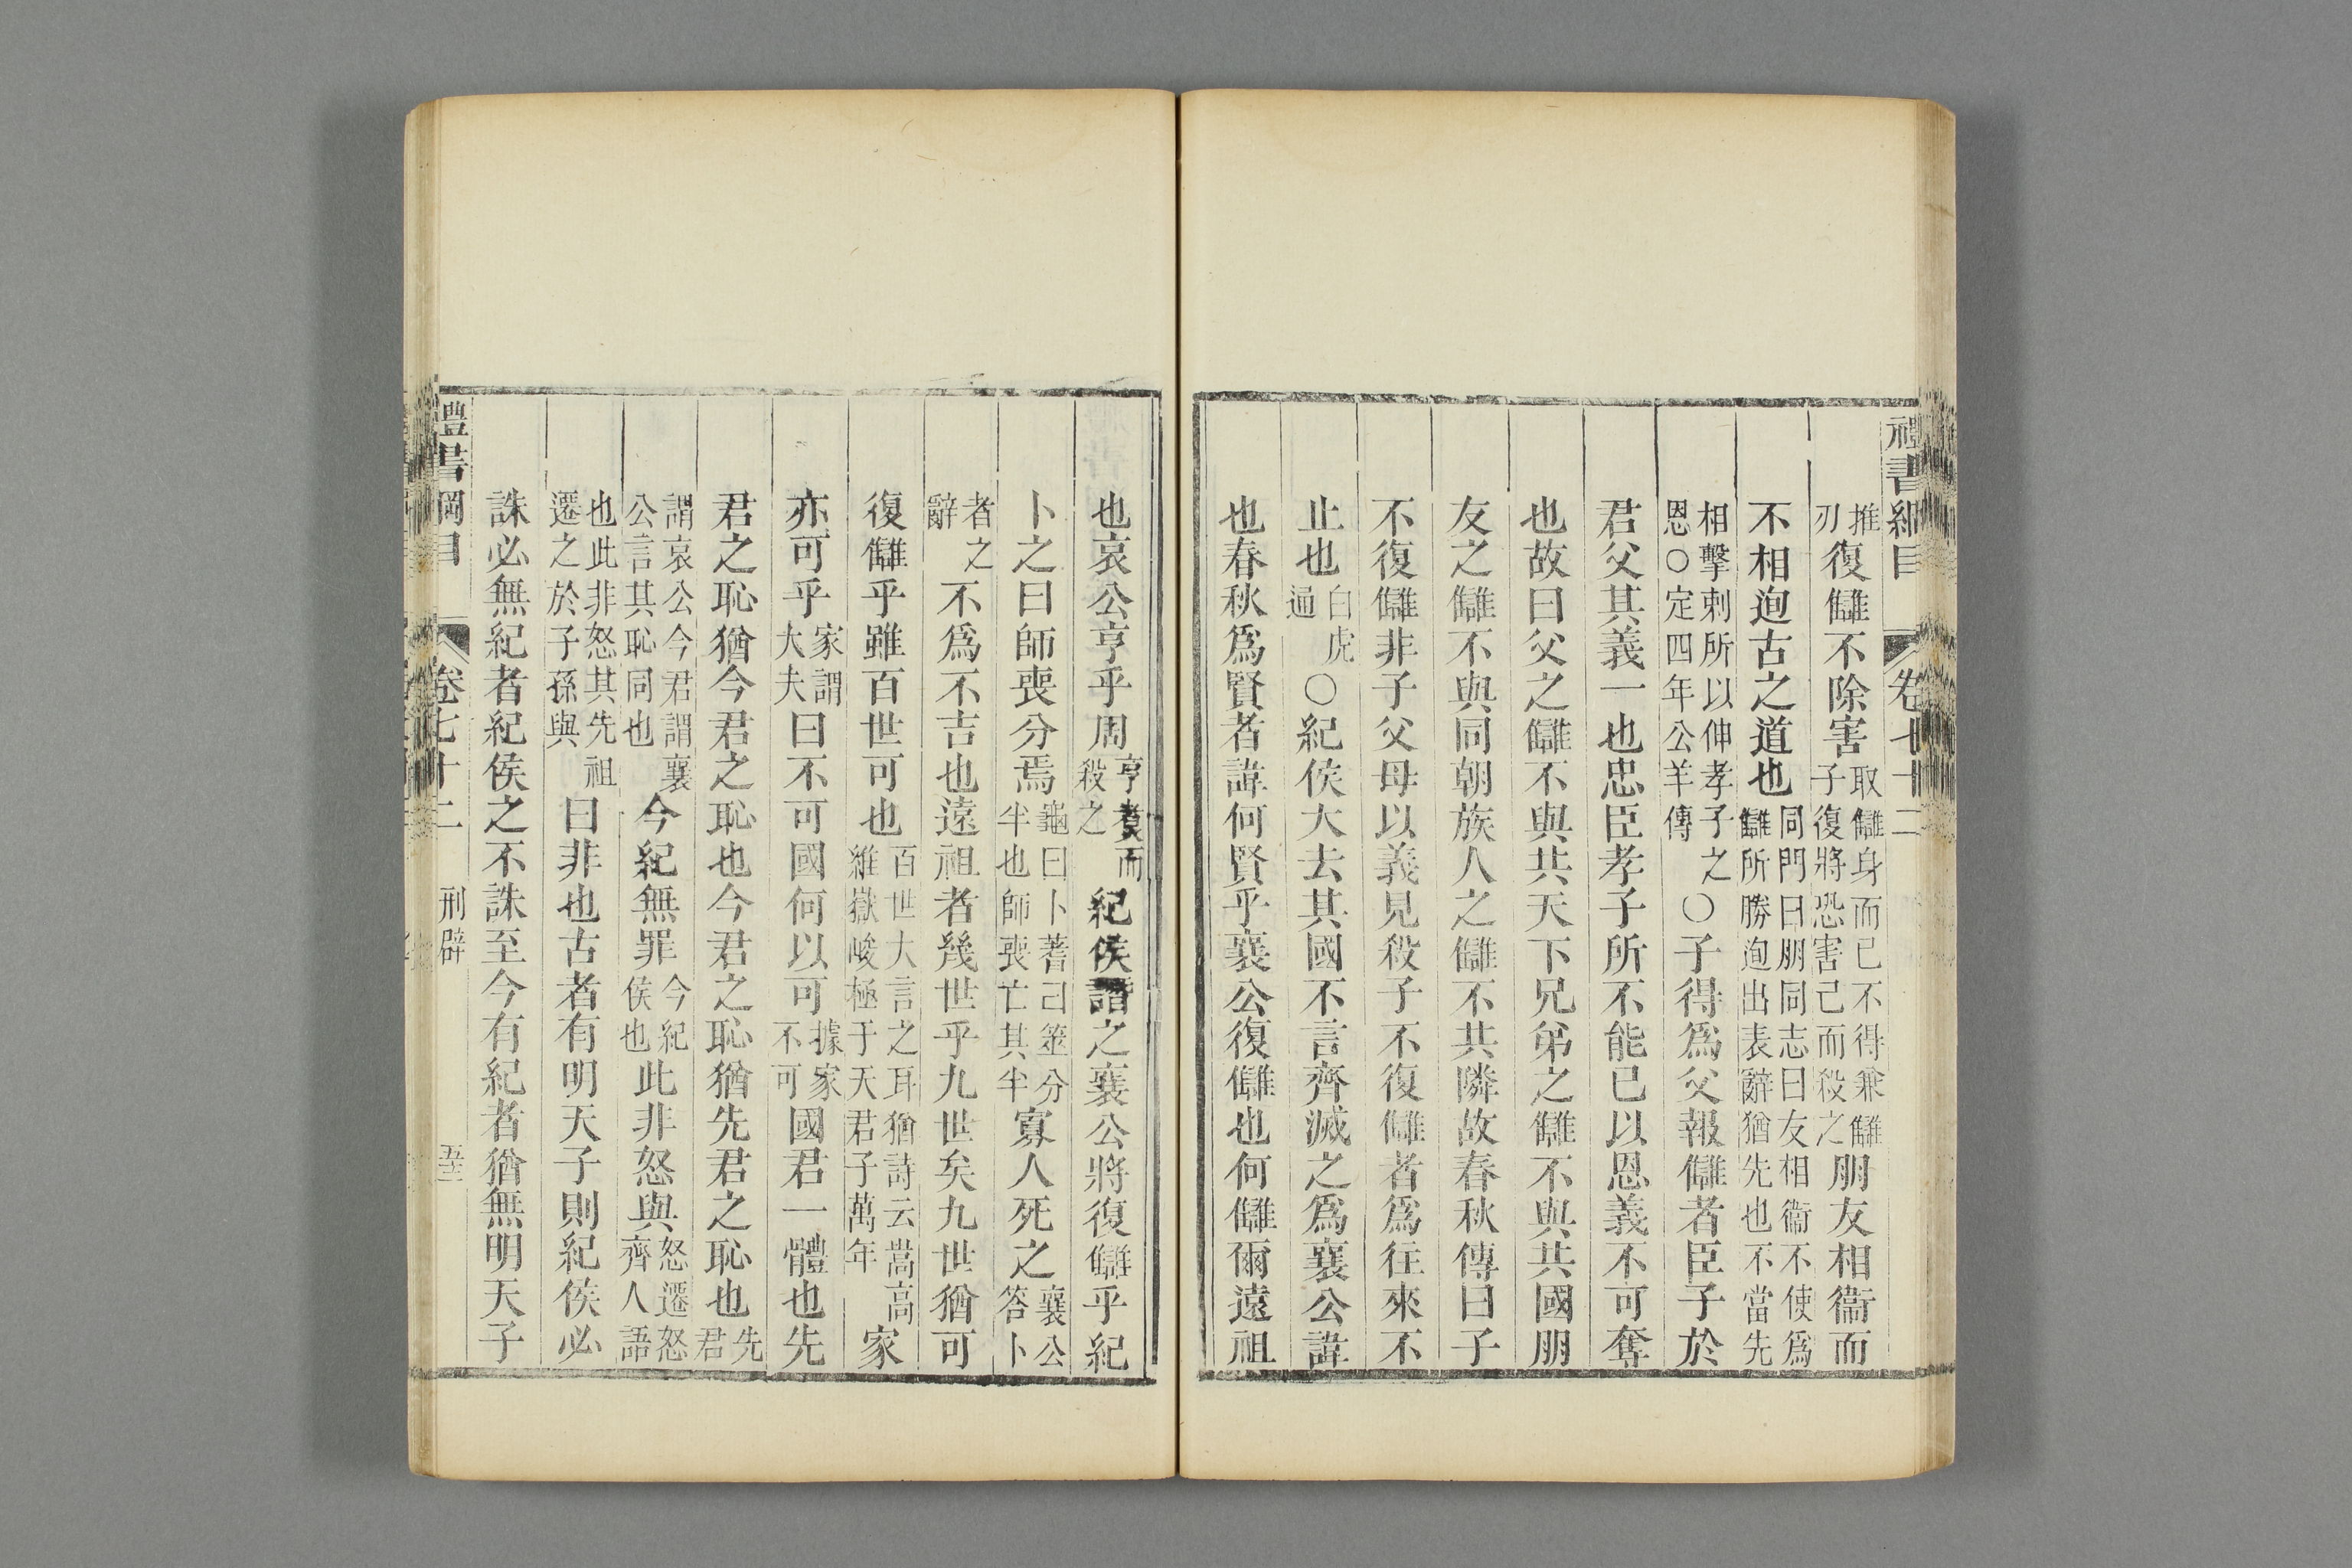 禮書綱目 卷七十二
推刃復讎不除害取讎身而已不得兼讎子復將恐害己而殺之朋友相衞而
不相迿古之道也同門曰朋同志曰友相衞不使爲讎所勝迿出表辭猶先也不當先
相擊刺所以伸孝子之恩○定四年公羊傳○子得爲父報讎者臣子於
君父其義一也忠臣孝子所不能已以恩義不可奪
也故曰父之讎不與共天下兄弟之讎不與共國朋
友之讎不與同朝族人之讎不共隣故春秋傳曰子
不復讎非子父母以義見殺子不復讎者爲往來不
止也白虎通○紀侯大去其國不言齊滅之爲襄公諱
也春秋爲賢者諱何賢乎襄公復讎也何讎爾遠祖
也哀公亨乎周亨煑而殺之紀侯譖之襄公將復讎乎紀
卜之曰師喪分焉龜曰卜蓍曰筮分半也師喪亡其半寡人死之襄公答卜
者之辭不爲不吉也遠祖者幾世乎九世矣九世猶可
復讎乎雖百世可也百世大言之耳猶詩云嵩高維嶽峻極于天君子萬年家
亦可乎家謂大夫曰不可國何以可據家不可國君一體也先
君之恥猶今君之恥也今君之恥猶先君之恥也先君
謂哀公今君謂襄公言其恥同也今紀無罪今紀侯也此非怒與怒遷怒齊人語
也此非怒其先祖遷之於子孫與曰非也古者有明天子則紀侯必
誅必無紀者紀侯之不誅至今有紀者猶無明天子
禮書綱目 卷七十二 刑辟